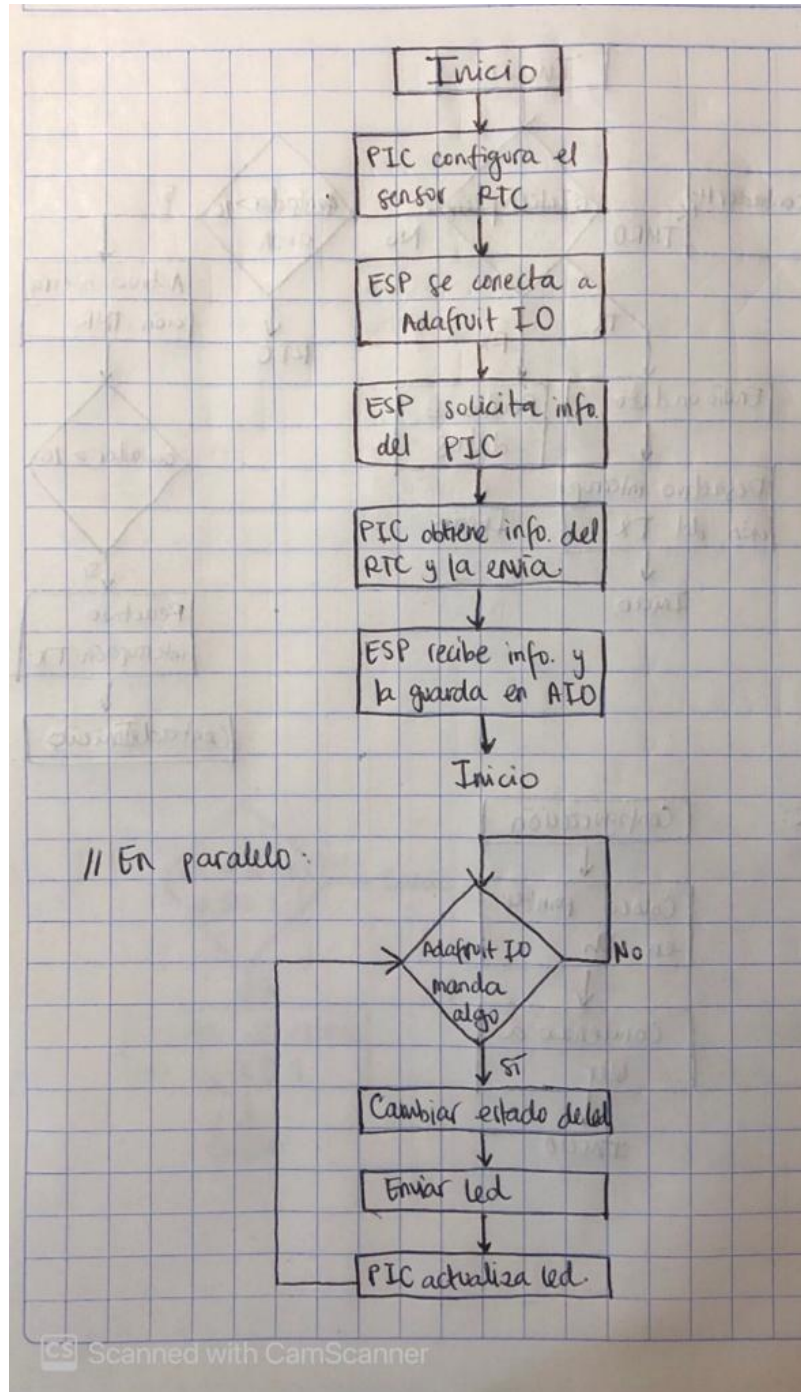 Inicio
PIC configura el
sensor RTC
ESP se conecta a
Adafruit IO
ESP solicita info.
del PIC
PIC obtiene info. del
RTC y la envía.
ESP recibe info. y
la guarda en AIO
Inicio
// En paralelo:
Adafruit IO
manda
algo
No
sí
Cambiar estado de led
Enviar led
PIC actualiza led.
CS Scanned with CamScanner